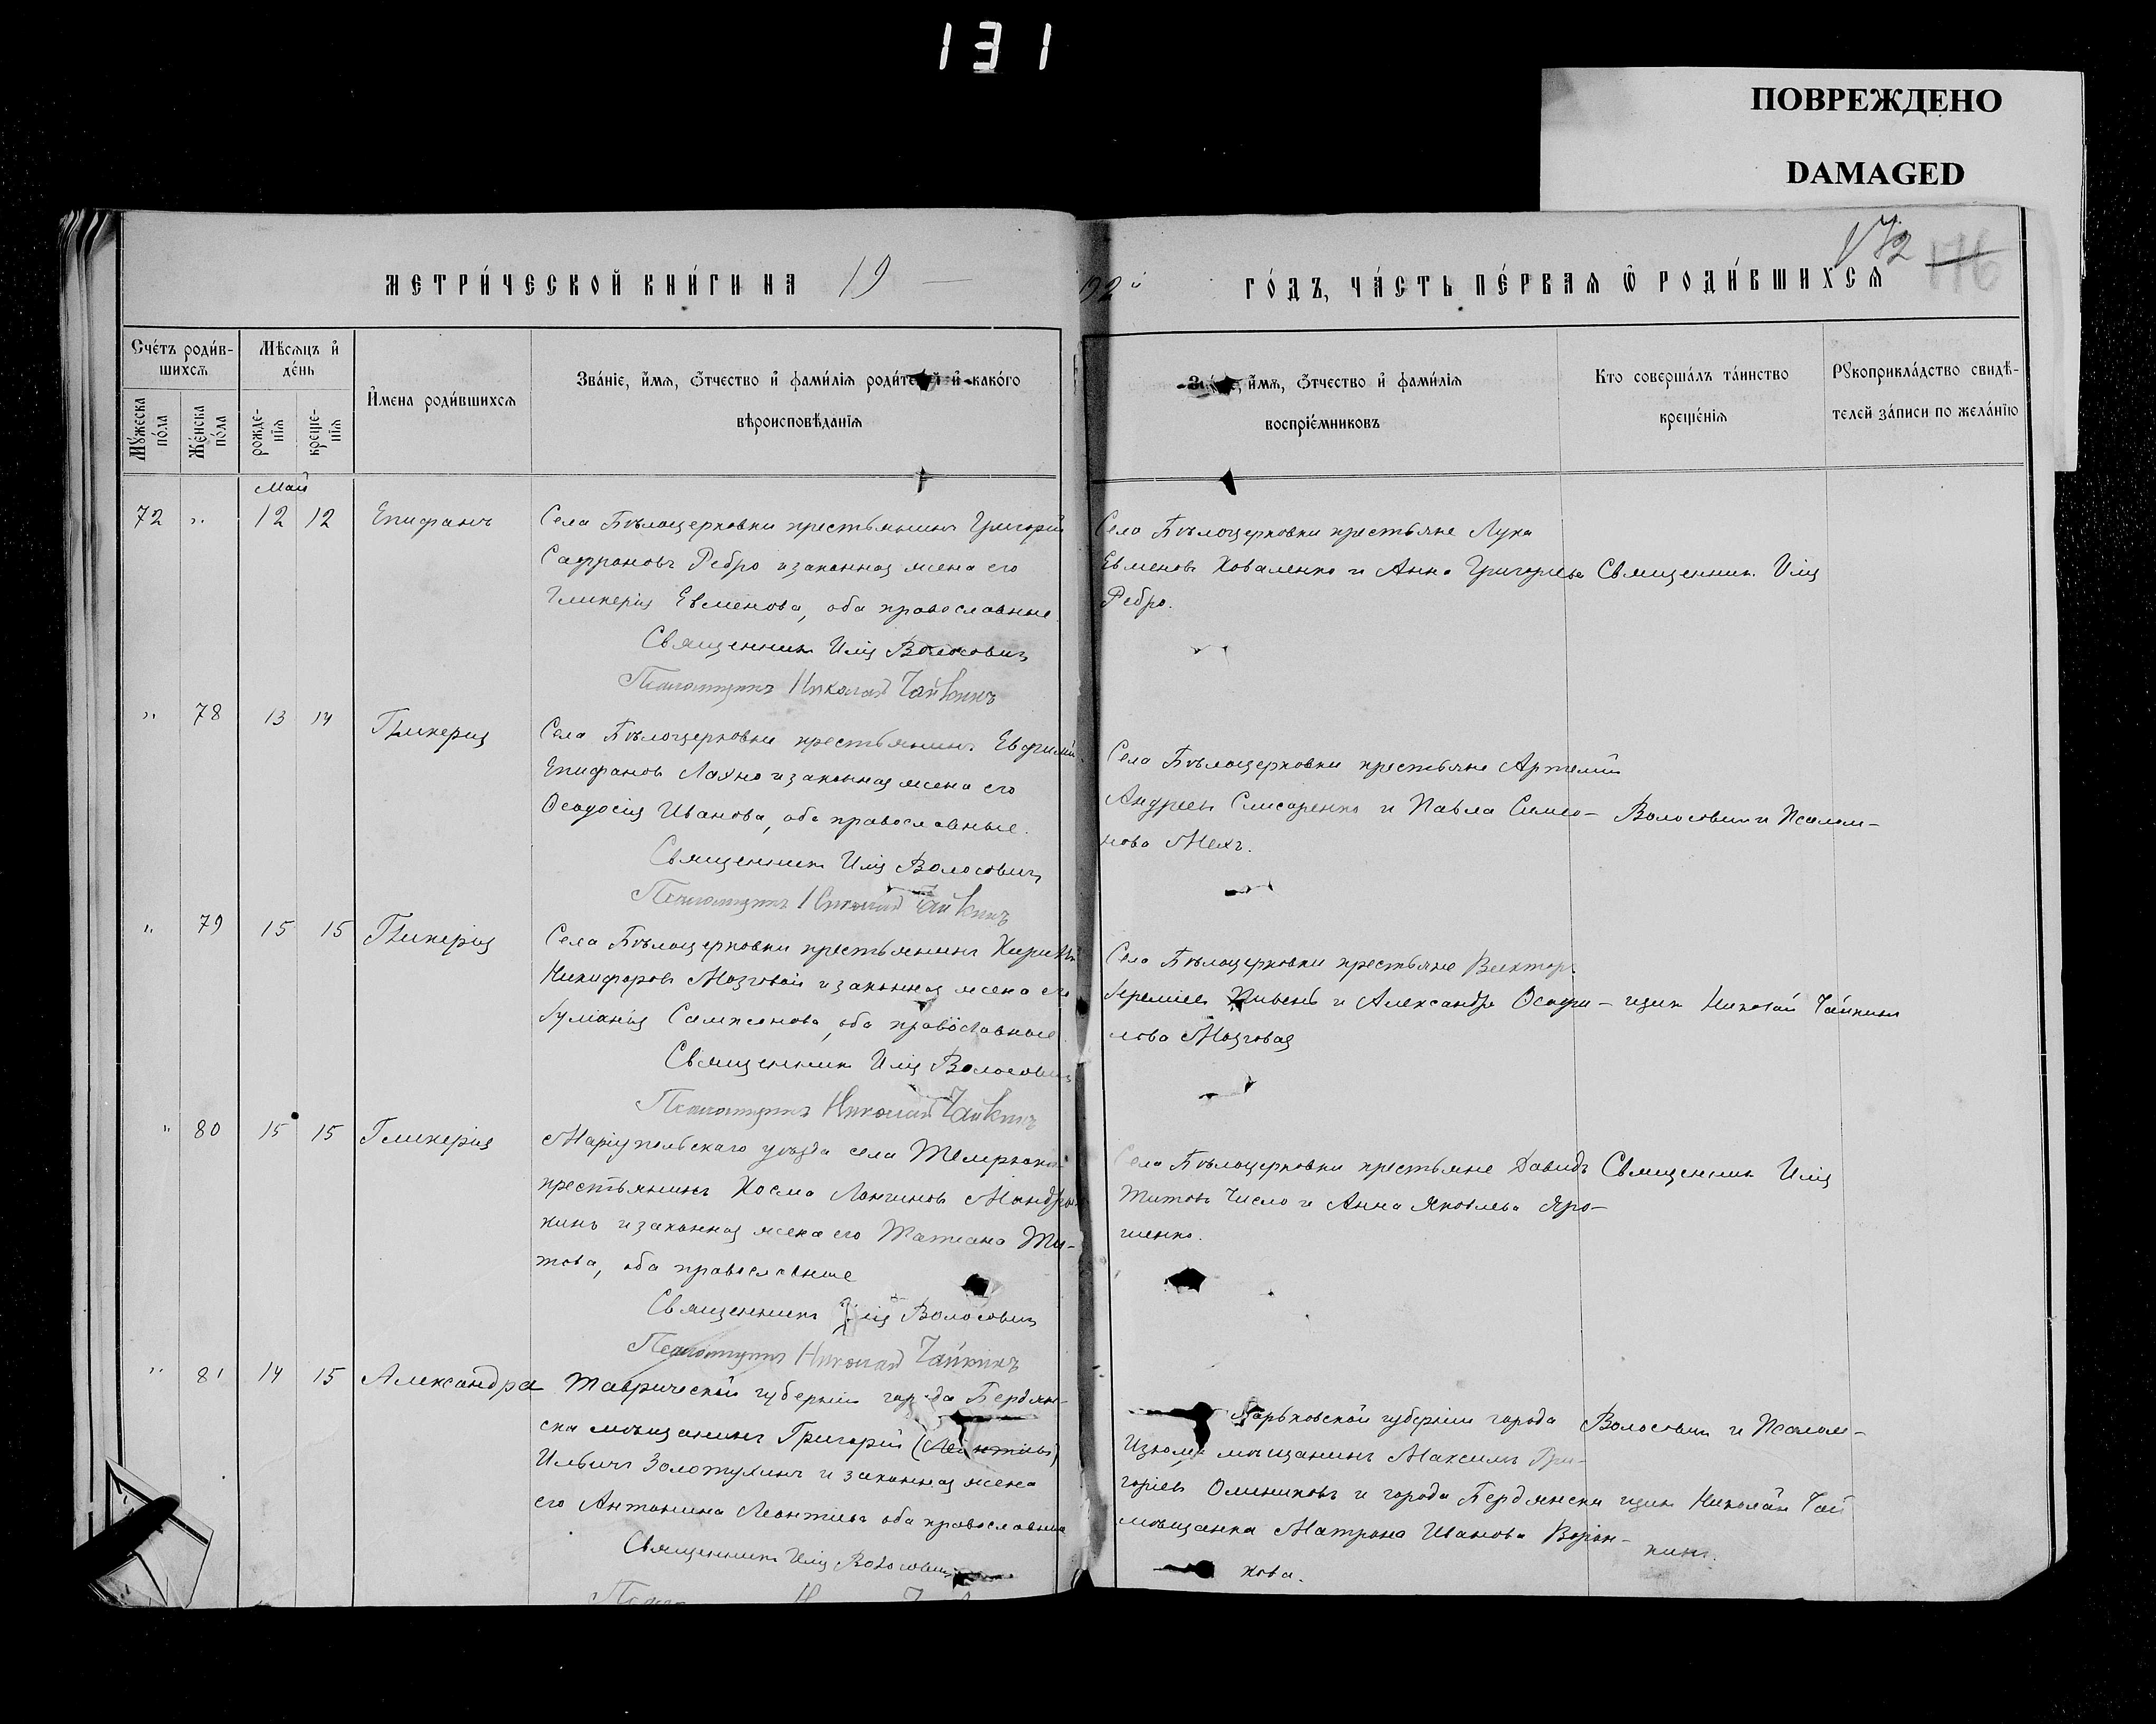 131
ПОВРЕЖДЕНО
DAMAGED
172 176
МЕТРИ́ЧЕСКОЙ КНИ́ГИ НА 19
02й ГО́ДЪ, ЧА́СТЬ ПЕ́РВАѦ Ѿ РОДИ́ВШИХСѦ
Сче́тъ роди́в-
шихсѧ
Мѣ́сѧцъ и҆
де́нь
Мꙋ́жеска
по́ла
Же́нска
по́ла
рожде-
нїѧ
креще-
нїѧ
И҆мена роди́вшихсѧ
Зва́нїе, и҆́мѧ, ѻ҆́тчество и҆ фами́лїѧ роди́телей и҆ како́го
вѣроисповѣ́данїѧ
Зва́нїе, и҆́мѧ, ѻ҆́тчество и҆ фами́лїѧ
воспрїе́мниковъ
Кто соверша́лъ та́инство
креще́нїѧ
Рꙋкоприкла́дство свидѣ́-
телей за́писи по жела́нїю
Май
72 " 12 12 Епифанъ
Села Бѣлоцерковки крестьянинъ Григорій
Сафроновъ Ребро и законная жена его
Гликерія Евменова, оба православные.
Священникъ Илія Волосовичъ
Псаломщикъ Николай Чайкинъ
Села Бѣлоцерковки крестьяне Лука
Евменовъ Коваленко и Анна Григорьева
Ребро.
Священникъ Илія
" 78 13 14 Гликерія
Села Бѣлоцерковки крестьянинъ Евфимій
Епифановъ Лахно и законная жена его
Ѳеодосія Иванова, оба православные.
Священникъ Илія Волосовичъ
Псаломщикъ Николай Чайкинъ
Села Бѣлоцерковки крестьяне Артемій
Андреевъ Слисаренко и Павла Симео-
нова Мехъ.
Волосовичъ и Псалом-
" 79 15 15 Гликерія
Села Бѣлоцерковки крестьянинъ Кирикъ
Никифоровъ Мозговой и законная жена его
Іуліанія Сампсонова, оба православные.
Священникъ Илія Волосовичъ
Псаломщикъ Николай Чайкинъ
Села Бѣлоцерковки крестьяне Викторъ
Іереміевъ Пивень и Александра
лова Мозговая
щикъ Николай Чайкинъ
" 80 15 15 Гликерія
Маріупольскаго уѣзда села Темрюка
крестьянинъ Косма Лонгиновъ Мандры-
кинъ и законная жена его Татіана Ти-
това, оба православные
Священникъ Илія Волосовичъ
Псаломщикъ Николай Чайкинъ
Села Бѣлоцерковки крестьяне Давидъ
Титовъ Число и Анна Яковлева Яро-
шенко.
Священникъ Илія
" 81 14 15 Александра
Таврической губерніи города Бердян-
ска мѣщанинъ Григорій (Леонтіевъ)
Ильичъ Золотухинъ и законная жена
его Антонина Леонтіева оба православные
Священникъ Илія Волосовичъ
Харьковской губерніи города
Изюма мѣщанинъ Максимъ Гри-
горіевъ Олиниковъ и города Бердянска
мѣщанка Матрона Иванова Ворон-
кова.
Волосовичъ и Псалом-
щикъ Николай Чай
кинъ.